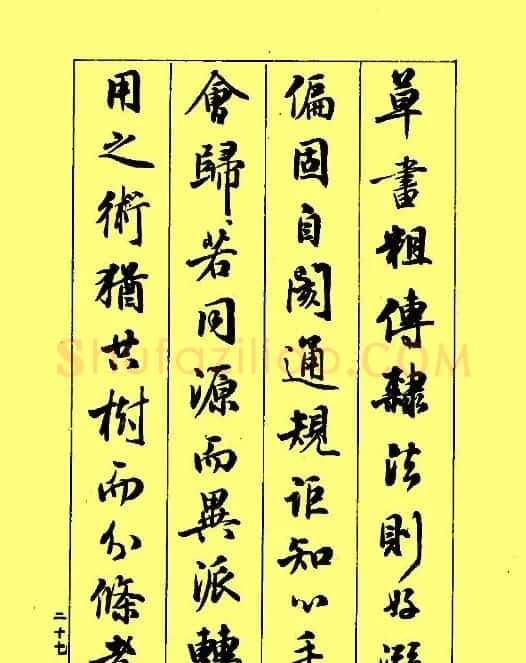 草書粗傳隸法則好溺
偏固自閡通規詎知心手
會歸若同源而異派轉
用之術猶共樹而分條者
二十七
Shufaziliao.COM